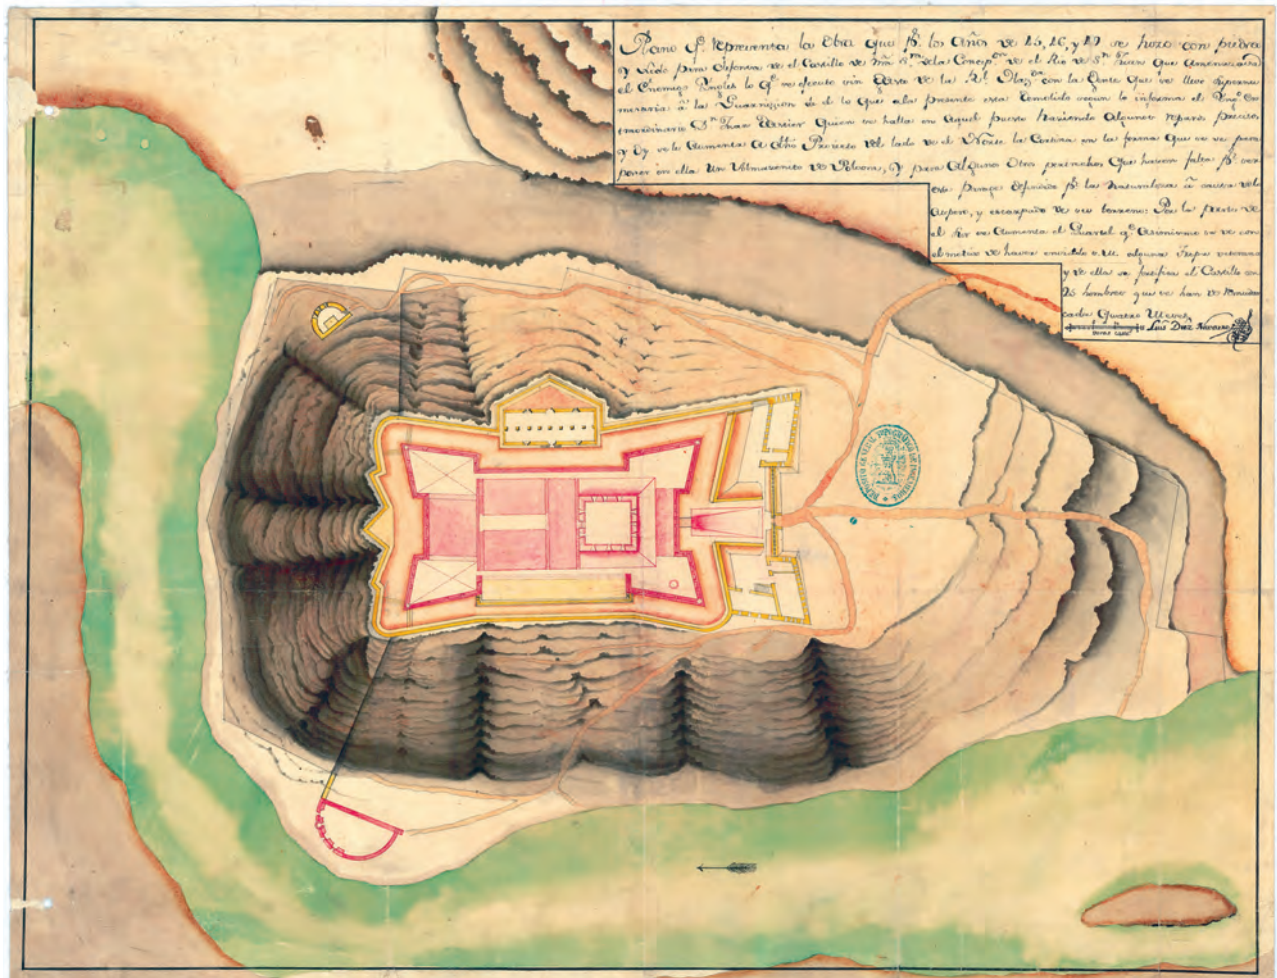 Plano q.e representa la Obra que p.r los años de 45, 46, y 47 se hizo con piedra
y Lodo para defensa de el Castillo de nra S.ra dela Concep.on de el Rio de S.n Juan que amenazaba
el Enemigo Yngles lo q.e se ejecuto sin de la R.l con la Gente que se llevo
a la Guarnizion de lo que ala presente esta demolido segun lo informa el Yng.o
D.n Juan quien se halla en aquel puerto haziendo algunos reparos precisos
y Oy se le aumenta a dho Proyecto del lado de el Norte la Cortina en la forma que se ve para
poner en ella un de Polvora, y para algunos Otros pertrechos que hazen falta p.r ser
este parage defendido p.r la Naturaleza a causa dela
aspero, y escarpado de su terreno: Por la parte de
el Sur se aumenta el Quartel q.e asimismo se ve con
el motivo de haver embiado S.M. alguna Tropa veterana
y de ella se el Castillo con
hombres que se han de
cada Quatro Meses
Luis Diez Navarro
DEPOSITO GENERAL TOPOGRAFICO DE INGENIEROS